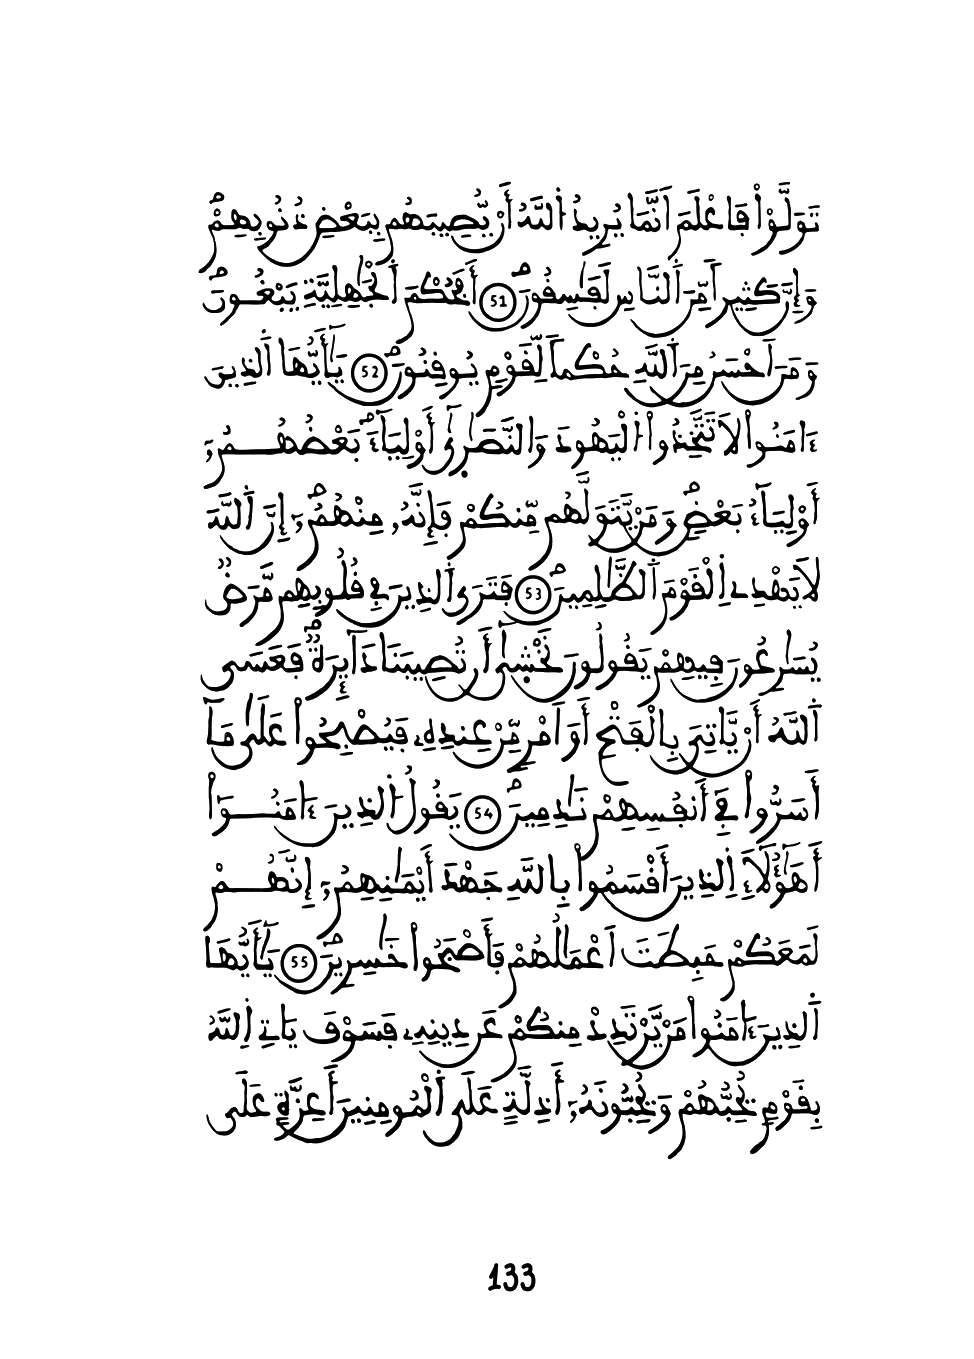 تَوَلَّوْاْ فَاعْلَمَ اَنَّمَا يُرِيدُ اُ۬للَّهُ أَنْ يُّصِيبَهُم بِبَعْضِ ذُنُوبِهِمْۖ
وَإِنَّ كَثِيراٗ مِّنَ اَ۬لنَّاسِ لَفَٰسِقُونَۖ 51 أَفَحُكْمَ اَ۬لْجَٰهِلِيَّةِ يَبْغُونَۖ
وَمَنَ اَحْسَنُ مِنَ اَ۬للَّهِ حُكْماٗ لِّقَوْمٖ يُوقِنُونَۖ 52 يَٰٓأَيُّهَا اَ۬لذِينَ
ءَامَنُواْ لَا تَتَّخِذُواْ اُ۬لْيَهُودَ وَالنَّصَٰر۪ىٰٓ أَوْلِيَآءَۖ بَعْضُهُمُۥٓ
أَوْلِيَآءُ بَعْضٖۖ وَمَنْ يَّتَوَلَّهُم مِّنكُمْ فَإِنَّهُۥ مِنْهُمُۥٓۖ إِنَّ اَ۬للَّهَ
لَا يَهْدِے اِ۬لْقَوْمَ اَ۬لظَّٰلِمِينَۖ 53 فَتَرَى اَ۬لذِينَ فِے قُلُوبِهِم مَّرَضٞ
يُسَٰرِعُونَ فِيهِمْ يَقُولُونَ نَخْش۪ىٰٓ أَن تُصِيبَنَا دَآئِرَةٞۖ فَعَسَى
اَ۬للَّهُ أَنْ يَّاتِيَ بِالْفَتْحِ أَوَ اَمْرٖ مِّنْ عِندِهِۦ فَيُصْبِحُواْ عَلَىٰ مَآ
أَسَرُّواْ فِےٓ أَنفُسِهِمْ نَٰدِمِينَۖ 54 يَقُولُ اُ۬لذِينَ ءَامَنُوٓاْ
أَهَٰٓؤُلَآءِ اِ۬لذِينَ أَقْسَمُواْ بِاللَّهِ جَهْدَ أَيْمَٰنِهِمُۥٓ إِنَّهُمْ
لَمَعَكُمْ حَبِطَتَ اَعْمَٰلُهُمْ فَأَصْبَحُواْ خَٰسِرِينَۖ 55 يَٰٓأَيُّهَا
اَ۬لذِينَ ءَامَنُواْ مَنْ يَّرْتَدِدْ مِنكُمْ عَن دِينِهِۦ فَسَوْفَ يَاتِے اِ۬للَّهُ
بِقَوْمٖ يُحِبُّهُمْ وَيُحِبُّونَهُۥٓ أَذِلَّةٍ عَلَى اَ۬لْمُومِنِينَ أَعِزَّةٍ عَلَى
133